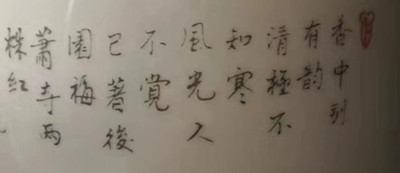 香中到
有韵
清極不
知寒
風光入
不覺
已著後
園梅
蕭寺兩
株紅